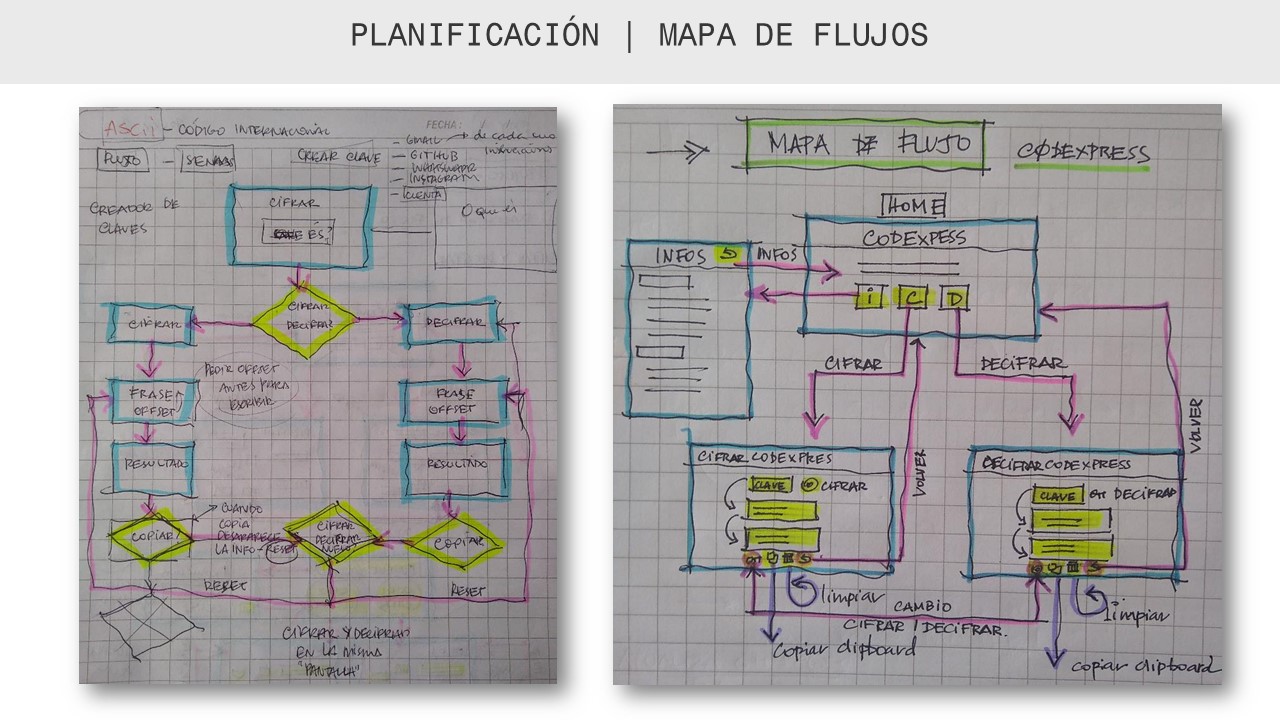 PLANIFICACIÓN | MAPA DE FLUJOS
ASCii - CÓDIGO INTERNACIONAL
FECHA:
FLUJO
CREAR CLAVE
- GMAIL → de cada uno
- GITHUB
- WHATSUAPP
- INSTAGRAM
- CUENTA
CREADOR DE
CLAVES
CIFRAR
ÉS?
O que es
CIFRAR
DECIFRAR?
CIFRAR
DECIFRAR
PEDIR OFFSET
ANTES PARA
ESCRIBIR
FRASE
OFFSET
FRASE
OFFSET
RESULTADO
RESULTADO
CUANDO
COPIA
DESAPARECE
LA INFO-RESET
COPIAR?
CIFRAR
DECIFRAR
COPIAR
RESET
RESET
CIFRAR Y DECIFRAR
EN LA MISMA
"PANTALLA"
MAPA DE FLUJO
CODEXPRESS
HOME
CODEXPESS
INFOS
INFOS
i C D
CIFRAR
DECIFRAR
VOLVER
VOLVER
CIFRAR CODEXPRES
CLAVE CIFRAR
DECIFRAR CODEXPRESS
CLAVE DECIFRAR
limpiar
CAMBIO
CIFRAR / DECIFRAR.
Copiar clipboard
limpiar
Copiar clipboard